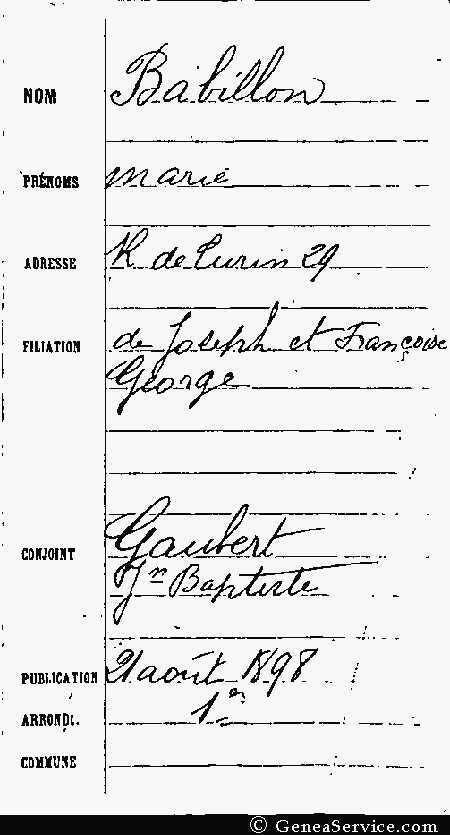 NOM Babillon
PRÉNOMS marie
ADRESSE R de Turin 29
FILIATION de Joseph et Françoise
George
CONJOINT Gaubert
Jn Baptiste
PUBLICATION 21 août 1898
ARRONDt. 1er
COMMUNE
© GeneaService.com